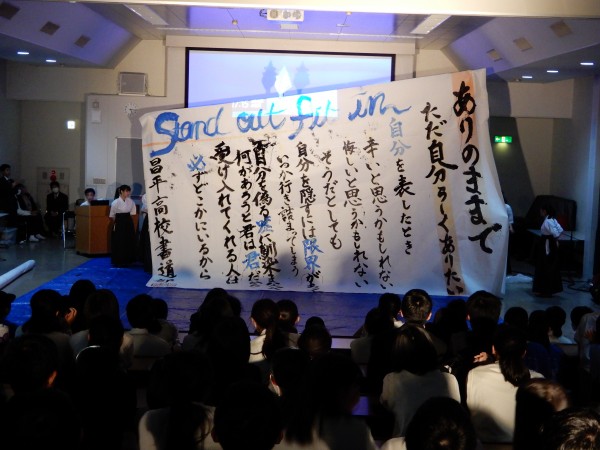 Stand out fit in
ありのままで
ただ自分らしくありたい
自分を表したとき
辛いと思うかもしれない
悔しいと思うかもしれない
そうだとしても
自分を隠すには限界が
いつか行き詰まってしまう
自分を偽る
何があろうと君は君だ
受け入れてくれる人は
必ずどこかにいるから
昌平高校書道